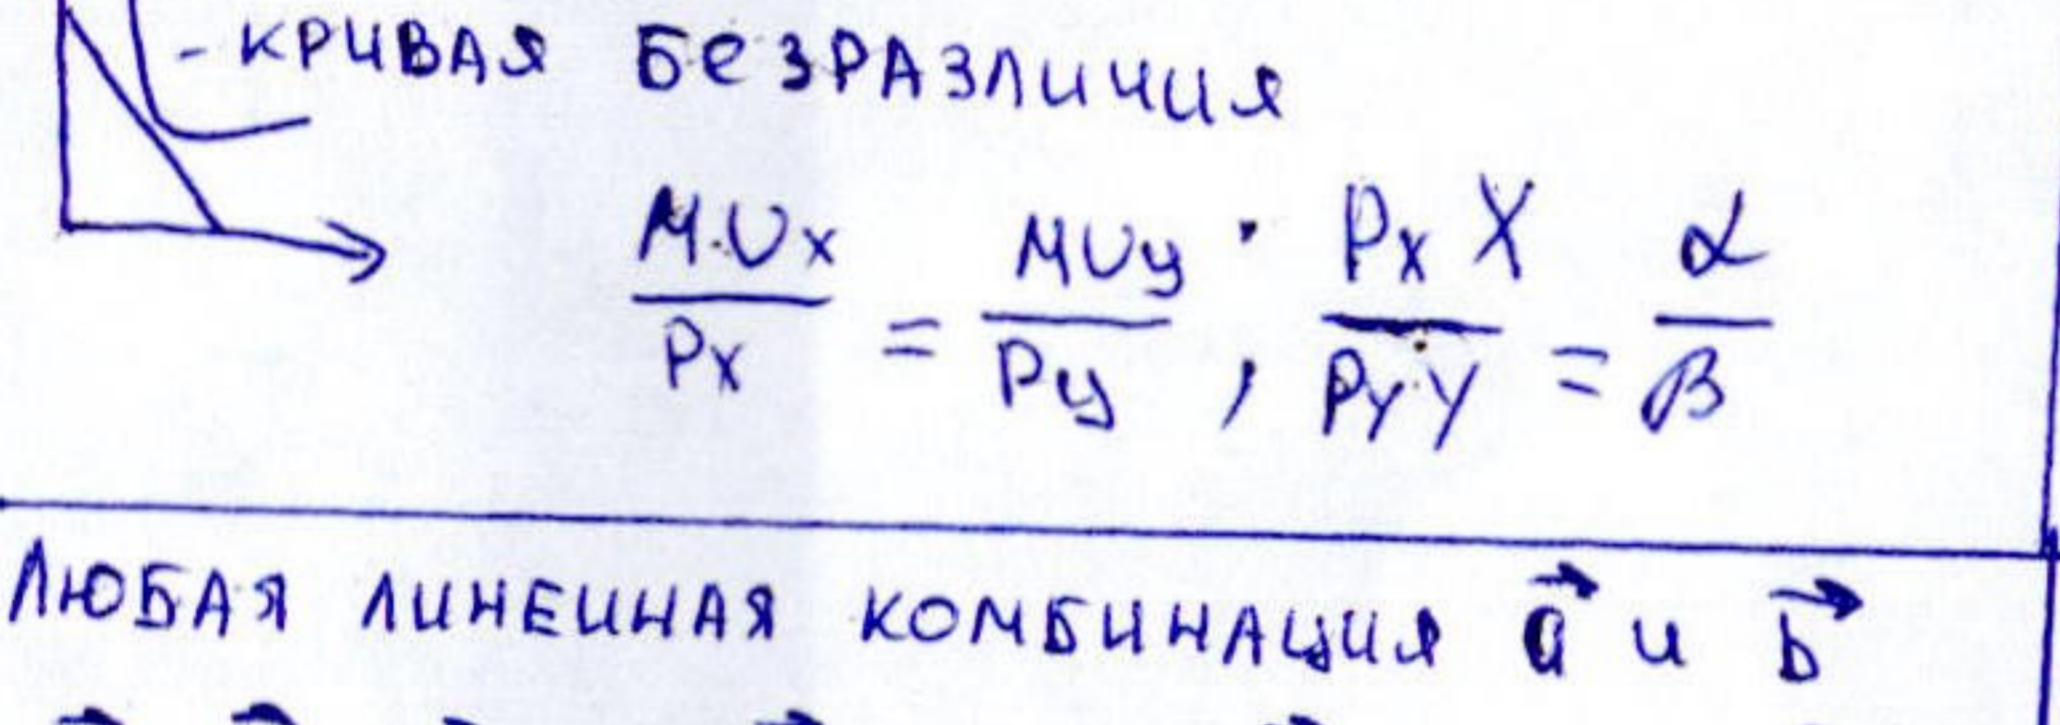 - КРИВАЯ БЕЗРАЗЛИЧИЯ
MUx / Px = MUy / Py , Px X / Py Y = α / β
ЛЮБАЯ ЛИНЕИНАЯ КОМБИНАЦИЯ a⃗ и b⃗